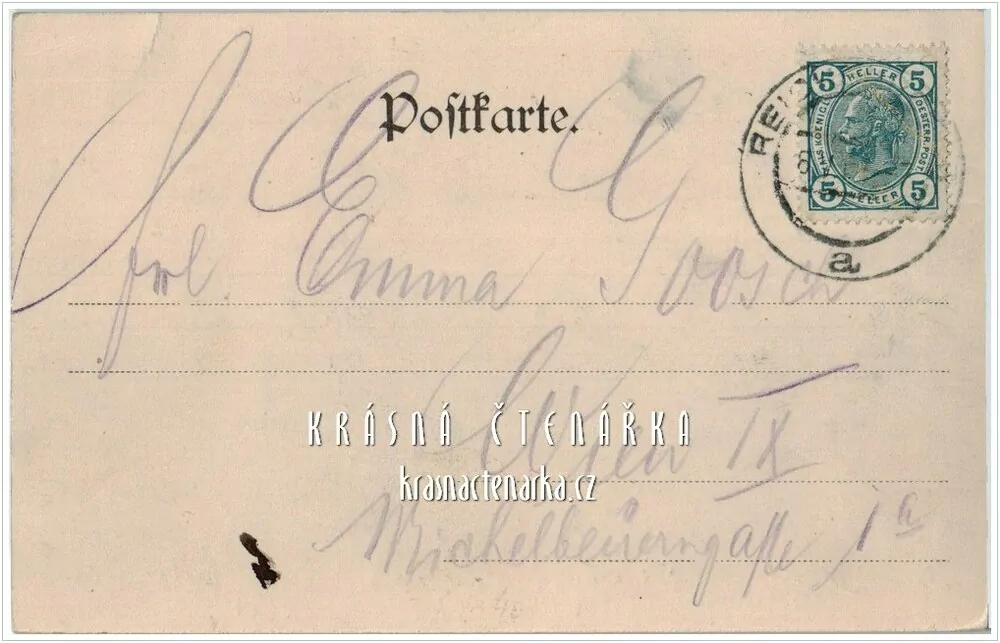 Postkarte.
5 HELLER 5
KAIS. KOENIGL. OESTERR. POST
5 HELLER 5
a
Frl. Emma Goosch
KRÁSNÁ ČTENÁŘKA
Wien IX
krasnactenarka.cz
Michelbeuerngasse 1a